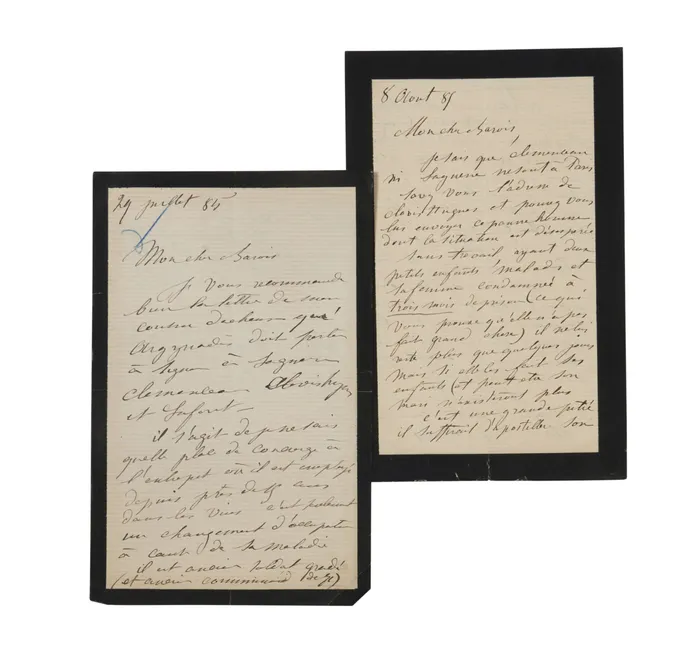 29 juillet 85
Mon cher Barois
Je vous recommande
bien la lettre de mon
cousin Dacheux que
Argyriadès doit porter
à signer à Laguerre
Clemenceau Clovis Hugues
et Laforet
il s'agit de je ne sais
quelle place de concierge à
l'entrepot où il est employé
depuis près de ans
dans les vins c'est
un changement d'occupation
à cause de sa maladie
il est ancien soldat gradé
(et ancien communard de 71)
8 Aout 85
Mon cher Barois,
Je sais que Clemenceau
ni Laguerre ne sont à Paris
savez vous l'adresse de
Clovis Hugues et pouvez vous
lui envoyer ce pauvre homme
dont la situation est désespérée
sans travail ayant deux
petits enfants malades et
sa femme condamnée à
trois mois de prison (ce qui
vous prouve qu'elle n'a pas
fait grand chose) il ne lui
reste plus que quelques jours
mais si elle les fait ses
enfants (et peut etre son
mari n'existeront plus
c'est une grande pitié
il suffirait d'apostiller son